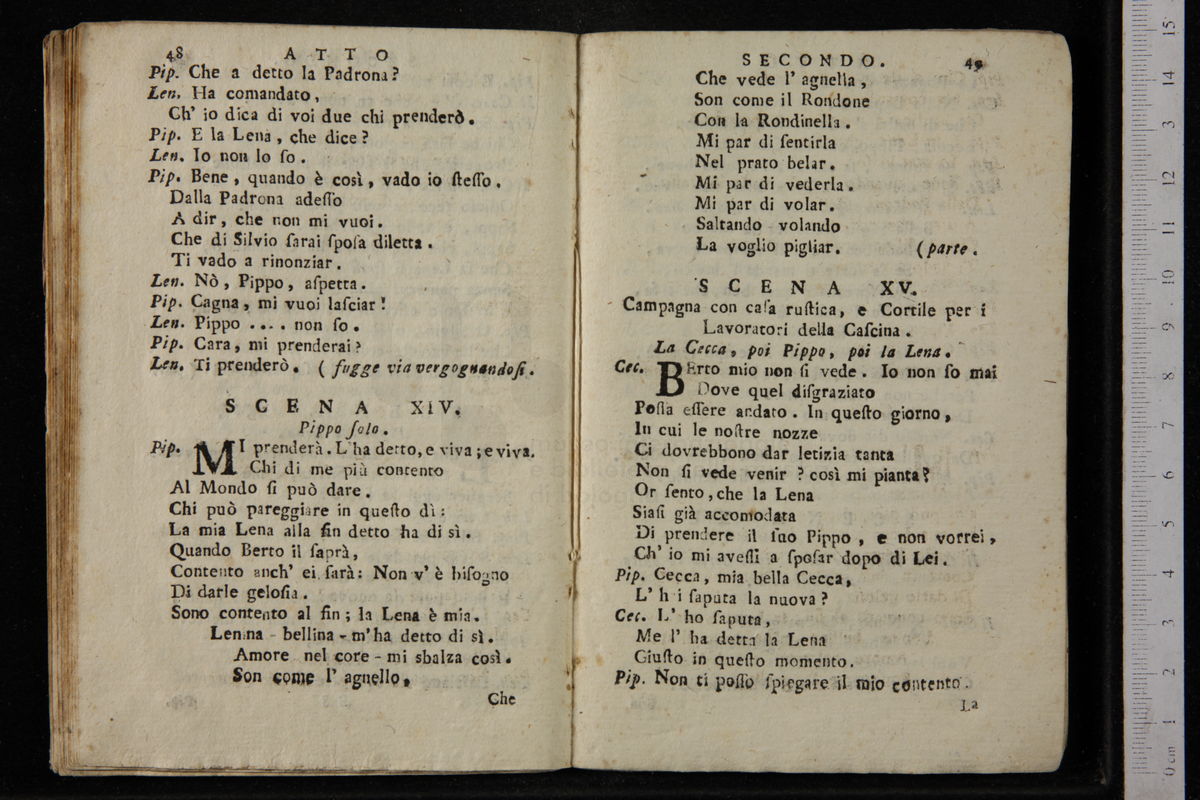 48 ATTO
Pip. Che a detto la Padrona?
Len. Ha comandato,
Ch' io dica di voi due chi prenderò.
Pip. E la Lena, che dice?
Len. Io non lo ſo.
Pip. Bene, quando è così, vado io ſteſſo.
Dalla Padrona adeſſo
A dir, che non mi vuoi.
Che di Silvio ſarai ſpoſa diletta.
Ti vado a rinonziar.
Len. Nò, Pippo, aſpetta.
Pip. Cagna, mi vuoi laſciar!
Len. Pippo .... non ſo.
Pip. Cara, mi prenderai?
Len. Ti prenderò. ( fugge via vergognandoſi.
SCENA XIV.
Pippo ſolo.
Pip. MI prenderà. L'ha detto, e viva; e viva.
Chi di me più contento
Al Mondo ſi può dare.
Chi può pareggiare in queſto dì:
La mia Lena alla fin detto ha di sì.
Quando Berto il ſaprà,
Contento anch' ei ſarà: Non v' è biſogno
Di darle geloſia.
Sono contento al fin; la Lena è mia.
Lenina - bellina - m'ha detto di sì.
Amore nel core - mi sbalza così.
Son come l' agnello,
Che
SECONDO. 49
Che vede l' agnella,
Son come il Rondone
Con la Rondinella.
Mi par di ſentirla
Nel prato belar.
Mi par di vederla.
Mi par di volar.
Saltando - volando
La voglio pigliar. (parte.
SCENA XV.
Campagna con caſa ruſtica, e Cortile per i
Lavoratori della Caſcina.
La Cecca, poi Pippo, poi la Lena.
Cec. BErto mio non ſi vede. Io non ſo mai
Dove quel diſgraziato
Poſſa eſſere andato. In queſto giorno,
In cui le noſtre nozze
Ci dovrebbono dar letizia tanta
Non ſi vede venir? così mi pianta?
Or ſento, che la Lena
Siaſi già accomodata
Di prendere il ſuo Pippo, e non vorrei,
Ch' io mi aveſſi a ſpoſar dopo di Lei.
Pip. Cecca, mia bella Cecca,
L' hai ſaputa la nuova?
Cec. L' ho ſaputa,
Me l' ha detta la Lena
Giuſto in queſto momento.
Pip. Non ti poſſo ſpiegare il mio contento.
La
15
14
13
12
11
10
9
8
7
6
5
4
3
2
1
0 cm